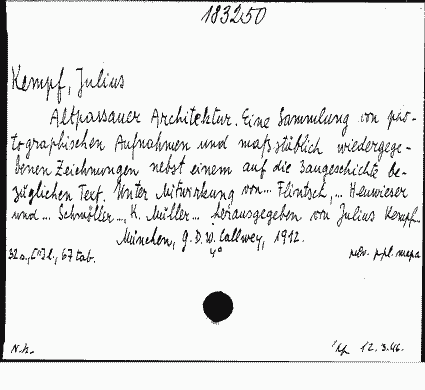 183250
Kempf, Julius
Altpassauer Architektur. Eine Sammlung von pho-
tographischen Aufnahmen und maßstäblich wiedergege-
benen Zeichnungen nebst einem auf die Baugeschichte be-
züglichen Text. Unter Mitwirkung von... Flintsch,... Heuwieser
und... Schmöller..., K. Müller... herausgegeben von Julius Kempf.
München, G. D. W. Callwey, 1912.
4°
32 a., [1] l., 67 tab. ppl. mapa
N.h. 12.3.46.